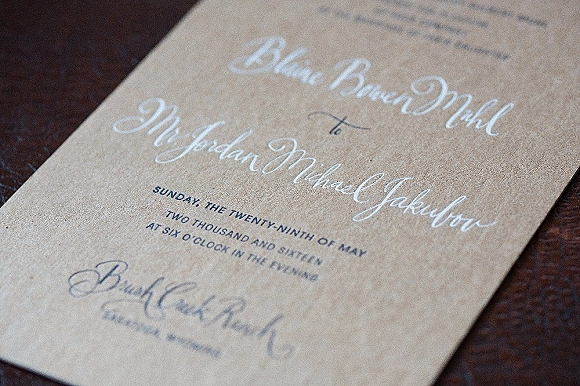 OF THEIR DAUGHTER
Blaine Bowen Muhl
to
Mr. Jordan Michael Jakubov
SUNDAY, THE TWENTY-NINTH OF MAY
TWO THOUSAND AND SIXTEEN
AT SIX O'CLOCK IN THE EVENING
Brush Creek Ranch
SARATOGA, WYOMING